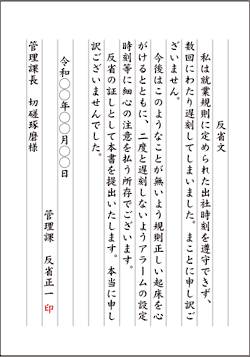 反省文
私は就業規則に定められた出社時刻を遵守できず、
数回にわたり遅刻してしまいました。まことに申し訳ご
ざいません。
今後はこのようなことが無いよう規則正しい起床を心
がけるとともに、二度と遅刻しないようアラームの設定
時刻等に細心の注意を払う所存でございます。
反省の証しとして本書を提出いたします。本当に申し
訳ございませんでした。
令和〇〇年〇〇月〇〇日
管理課 反省正一 印
管理課長 切磋琢磨様